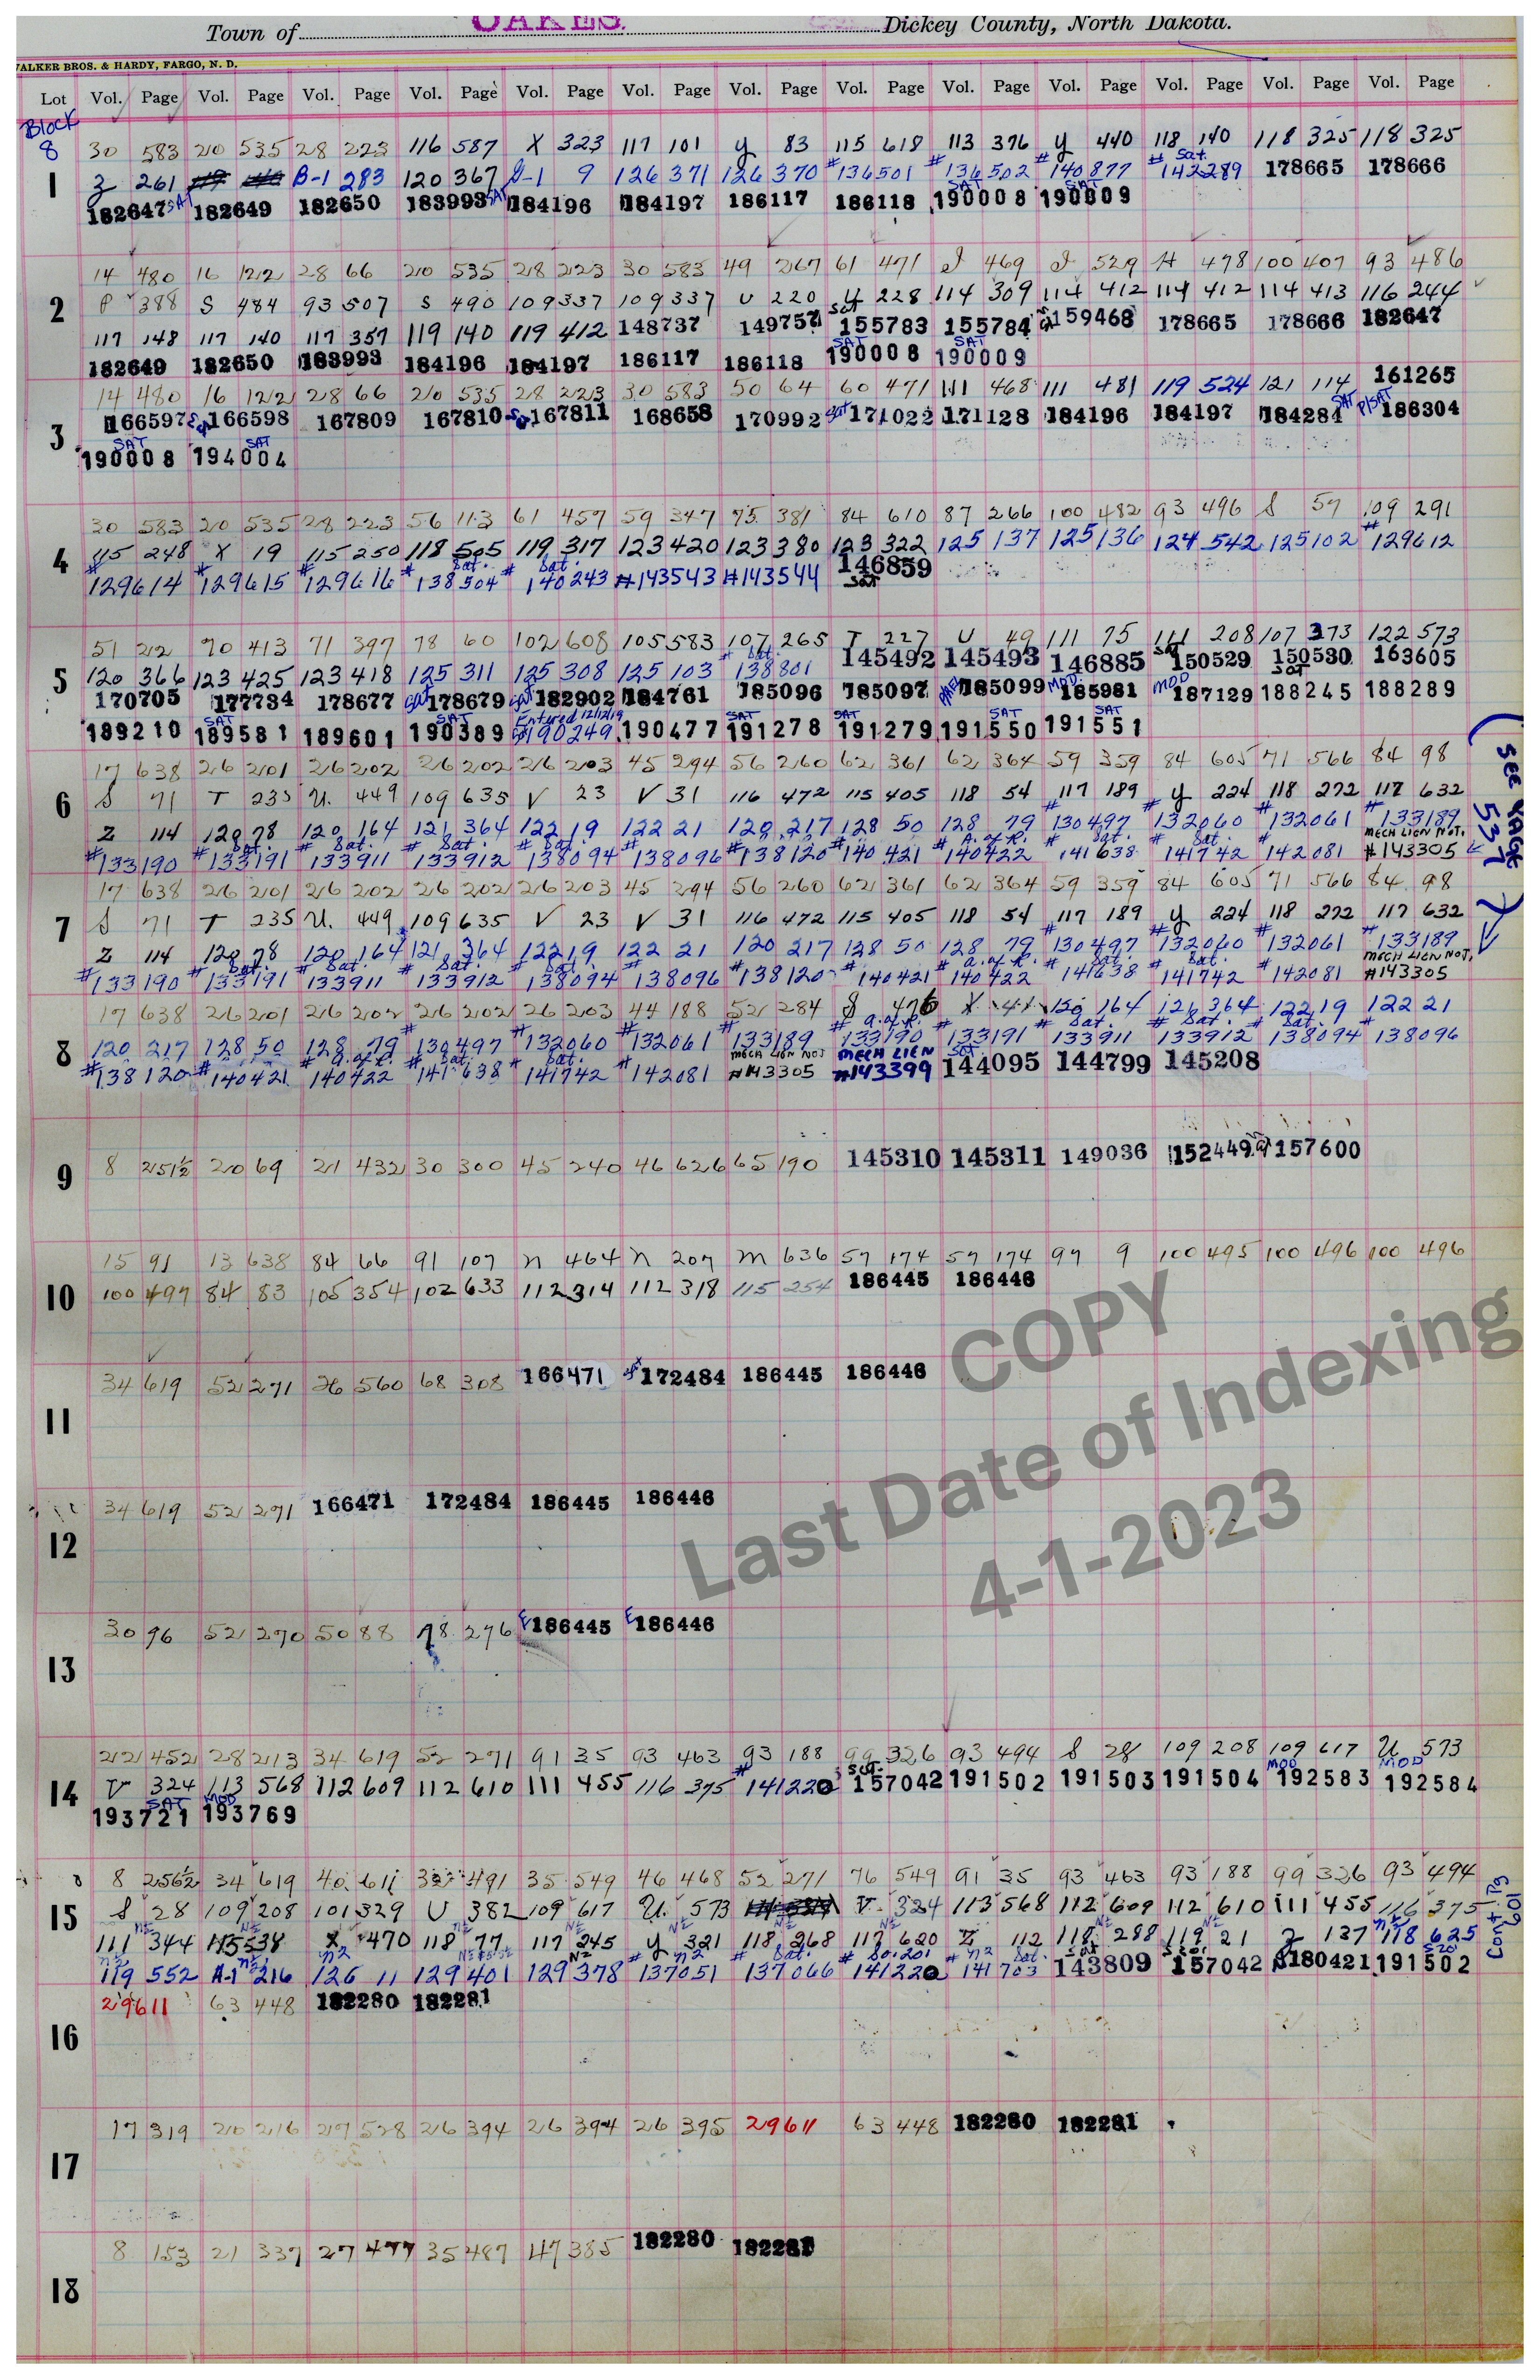 Town of OAKES. Dickey County, North Dakota.
WALKER BROS. & HARDY, FARGO, N. D.
Lot Vol. Page Vol. Page Vol. Page Vol. Page Vol. Page Vol. Page Vol. Page Vol. Page Vol. Page Vol. Page Vol. Page Vol. Page Vol. Page
Block
8 30 583 20 535 28 223 116 587 X 323 117 101 y 83 115 618 113 376 y 440 118 140 118 325 118 325
1 z 261 B-1 283 120 367 9 126 371 126 370 #136501 #136502 #140877 # Sat. 142289 178665 178666
182647 SAT 182649 182650 183993 SAT 184196 184197 186117 186118 SAT 190008 SAT 190009
14 480 16 122 28 66 20 535 28 223 30 583 49 267 61 471 469 529 H 478 100 407 93 486
2 P 388 S 484 93 507 S 490 109 337 109 337 U 220 y 228 114 309 114 412 114 412 114 413 116 244
117 148 117 140 117 357 119 140 119 412 148737 149757 Sat 155783 155784 159468 178665 178666 182647
182649 182650 183993 184196 184197 186117 186118 SAT 190008 SAT 190009
14 480 16 122 28 66 20 535 28 223 30 583 50 64 60 471 111 468 111 481 119 524 121 114 161265
3 166597 166598 167809 167810 167811 168658 170992 Sat 171022 171128 184196 184197 184284 SAT P/SAT 186304
SAT 190008 SAT 194004
30 583 20 535 28 223 56 113 61 457 59 347 75 381 84 610 87 266 100 482 93 496 S 57 109 291
4 115 248 X 19 115 250 118 505 119 317 123 420 123 380 123 322 125 137 125 136 124 542 125 102 #129612
#129614 #129615 #129616 # Sat. 138504 # Sat. 140243 #143543 #143544 146859 Sat
51 22 70 413 71 397 78 60 102 608 105 583 107 265 T 227 U 49 111 75 111 208 107 373 122 573
5 120 366 123 425 123 418 125 311 125 308 125 103 # Sat. 138801 145492 145493 146885 Sat 150529 150530 Sat 163605
170705 177734 178677 Sat 178679 Sat 182902 184761 185096 185097 185099 MOD. 185981 MOD 187129 188245 188289
189210 SAT 189581 189601 SAT 190389 Entered 12/12/19 190249 190477 SAT 191278 SAT 191279 SAT 191550 SAT 191551
17 638 26 201 26 202 26 202 26 203 45 294 56 260 62 361 62 364 59 359 84 605 71 566 84 98
(SEE PAGE 537)
6 S 71 T 235 U. 449 109 635 V 23 V 31 116 472 115 405 118 54 117 189 y 224 118 272 117 632
Z 114 120 78 120 164 121 364 122 19 122 21 120 217 128 50 128 79 #130497 #132060 #132061 #133189
#133190 # Sat. 133191 # Sat. 133911 # Sat. 133912 # Sat. 138094 #138096 #138120 #140421 # A. of R. 140422 # Sat. 141638 # Sat. 141742 #142081 MECH LIEN NOT. #143305
17 638 26 201 26 202 26 202 26 203 45 294 56 260 62 361 62 364 59 359 84 605 71 566 84 98
7 S 71 T 235 U. 449 109 635 V 23 V 31 116 472 115 405 118 54 117 189 y 224 118 272 117 632
Z 114 120 78 120 164 121 364 122 19 122 21 120 217 128 50 128 79 #130497 #132060 #132061 #133189
#133190 # Sat. 133191 # Sat. 133911 # Sat. 133912 # Sat. 138094 #138096 #138120 #140421 # A. of R. 140422 # Sat. 141638 # Sat. 141742 #142081 MECH LIEN NOT. #143305
17 638 26 201 26 202 26 202 26 203 44 188 52 284 S 476 X 41 120 164 121 364 122 19 122 21
8 120 217 128 50 128 79 #130497 #132060 #132061 #133189 # A. of R. 133190 #133191 # Sat. 133911 # Sat. 133912 # Sat. 138094 #138096
#138120 #140421 # A. of R. 140422 # Sat. 141638 # Sat. 141742 #142081 MECH LIEN NOT #143305 MECH LIEN #143399 Sat 144095 144799 145208
9 8 251½ 20 69 21 432 30 300 45 240 46 626 65 190 145310 145311 149036 152449 157600
15 91 13 638 84 66 91 107 n 464 n 207 m 636 57 174 57 174 97 9 100 495 100 496 100 496
10 100 497 84 83 105 354 102 633 112 314 112 318 115 254 186445 186446
11 34 619 52 271 26 560 68 308 166471 172484 186445 186446
12 34 619 52 271 166471 172484 186445 186446
13 30 96 52 270 50 88 78 276 E 186445 E 186446
22 452 28 213 34 619 52 271 91 35 93 463 93 188 99 326 93 494 S 28 109 208 109 617 U 573
14 V 324 113 568 112 609 112 610 111 455 116 375 #141220 Sat. 157042 191502 191503 191504 MOD 192583 MOD 192584
SAT 193721 MOD 193769
8 256½ 34 619 40 611 32 491 35 549 46 468 52 271 76 549 91 35 93 463 93 188 99 326 93 494
15 S 28 109 208 101 329 U 382 109 617 U. 573 V 324 113 568 112 609 112 610 111 455 116 375
111 344 115 538 X 470 118 77 117 245 y 321 118 268 117 620 Z 112 118 288 119 21 z 137 118 625
119 552 A-1 216 126 11 129 401 129 378 #137051 # Sat. 137066 #141220 # Sat. 141703 143809 157042 180421 191502
Cont'd 619
29611 63 448 182280 182281
16
17 319 20 216 27 528 26 394 26 394 26 395 29611 63 448 182280 182281
17
8 153 21 337 27 477 35 487 47 385 182280 182281
18
COPY
Last Date of Indexing
4-1-2023